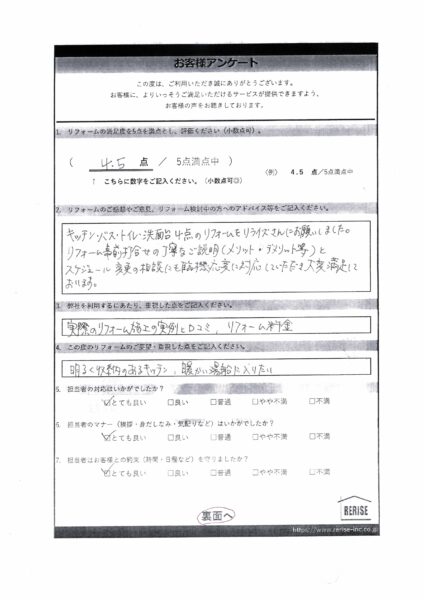 お客様アンケート
この度は、ご利用いただき誠にありがとうございます。
お客様に、よりいっそうご満足いただけるサービスが提供できますよう、
お客様の声をお聴きしております。
1. リフォームの満足度を5点を満点とし、評価ください（小数点可）。
( 4.5 点 / 5点満点中 )
↑ こちらに数字をご記入ください。（小数点可◎）
（例） 4.5 点/5点満点中
2. リフォームのご感想やご意見、リフォーム検討中の方へのアドバイス等をご記入ください。
キッチン・バス・トイレ・洗面台4点のリフォームをリライズさんにお願いしました。
リフォーム事前打合せの丁寧なご説明（メリット・デメリット等）と
スケジュール変更の相談にも臨機応変に対応していただき大変満足して
おります。
3. 弊社を利用するにあたり、重視した点をご記入ください。
実際のリフォーム施工の実例と口コミ、リフォーム料金
4. この度のリフォームのご要望・重視した点をご記入ください。
明るく収納のあるキッチン、暖かい湯船に入りたい
5. 担当者の対応はいかがでしたか？
☑とても良い □良い □普通 □やや不満 □不満
6. 担当者のマナー（挨拶・身だしなみ・気配りなど）はいかがでしたか？
☑とても良い □良い □普通 □やや不満 □不満
7. 担当者はお客様との約束（時間・日程など）を守りましたか？
☑とても良い □良い □普通 □やや不満 □不満
裏面へ
RERISE
https://www.rerise-inc.co.jp